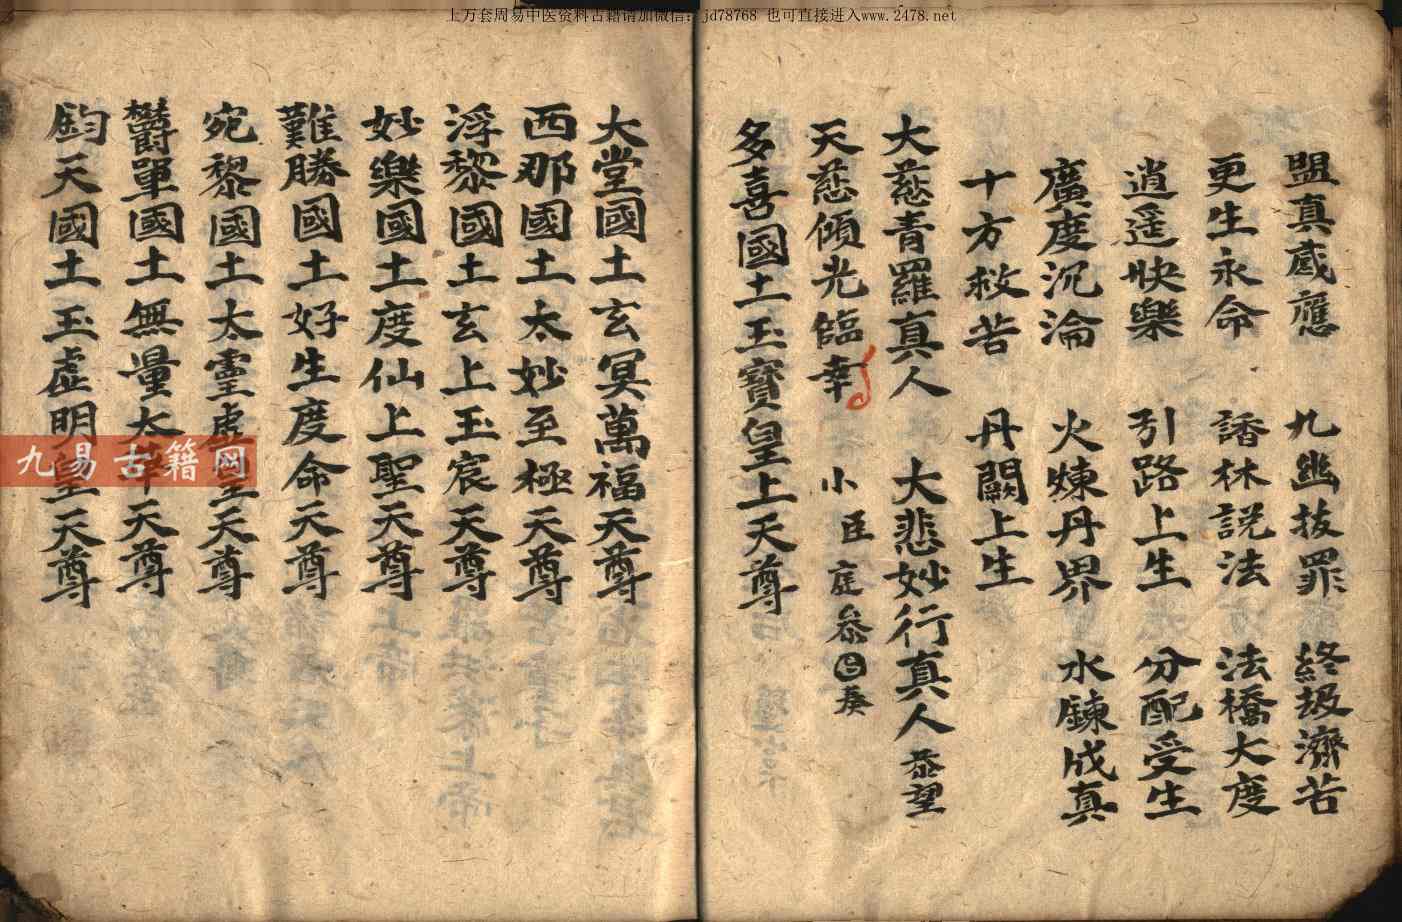 上万套周易中医资料古籍请加微信：jd78768 也可直接进入www.2478.net
盟真感應 九幽拔罪 終圾濟苦
更生永命 諸林説法 法橋大度
逍遥快樂 引路上生 分配受生
廣度沉淪 火煉丹界 水鍊成真
十方救苦 丹闕上生
大慈青羅真人 大悲妙行真人 恭望
天慈傾光臨幸 小臣 庭參 奏
多喜國土玉寳皇上天尊
大堂國土玄冥萬福天尊
西那國土太妙至極天尊
浮黎國土玄上玉宸天尊
妙樂國土度仙上聖天尊
難勝國土好生度命天尊
宛黎國土太靈虚皇天尊
欝單國土無量太華天尊
鈞天國土玉虚明皇天尊
九易古籍网